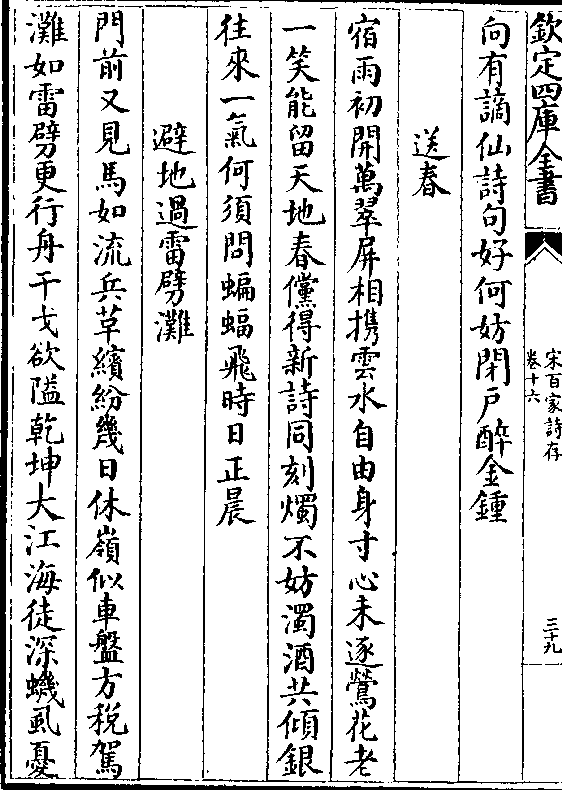 欽定四庫全書
宋百家詩存
卷十六
三十九
向有謫仙詩句好何妨閉戸醉金鍾
送春
宿雨初開萬翠屏相攜雲水自由身寸心未逐鶯花老
一笑能留天地春儻得新詩同刻燭不妨濁酒共傾銀
往來一氣何須問蝙蝠飛時日正晨
避地過雷劈灘
門前又見馬如流兵草繽紛幾日休嶺似車盤方稅駕
灘如雷劈更行舟干戈欲隘乾坤大江海徒深蟣虱憂